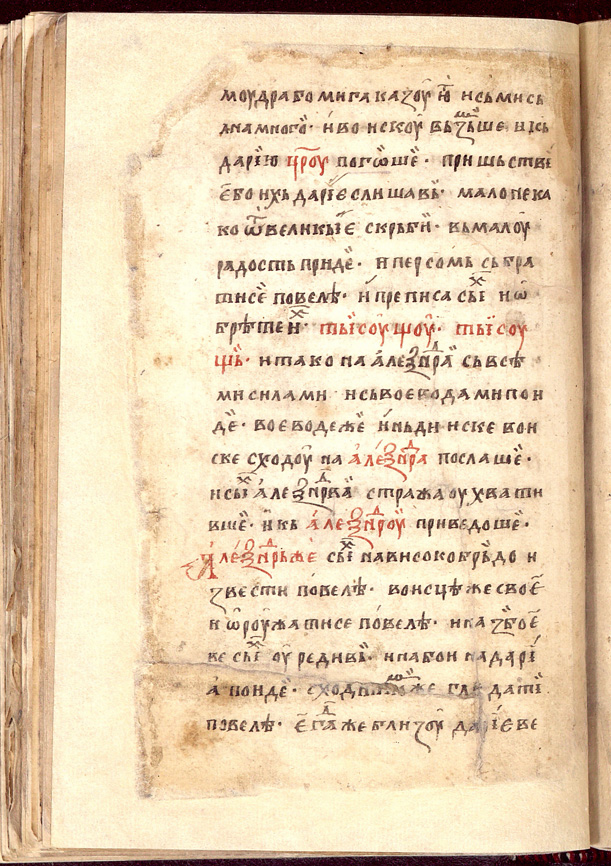 моудра бо мига казоуѥ҃ и сь ми сь
ꙗ на много҃· и во искоу вьзьⷨше и кь
дарїю црⷭ҇оу погѡше҃· пришьствї
є бо ихь дарїе слишавь· мало нека
ко ѿ великыѥ скрьби· вь малоу
радость приде· и персомь сьбра
ти се повелѣ· и преписа сыⷯ и ѡ
брѣте иⷯ· тысоущоу· тысоу
щь· и тако на алеѯⷣнра сь всѣ
ми силами и сь воєводами пои
де· воєводе же и иньди иске вои
ске сходоу на алеѯⷣнра послаше·
и сыⷯ алеѯⷣнрва стража оухвати
вше· и кь алеѯⷣнроу приведоше·
Алеѯⷣнрь же сыⷯ на високо брьдо и
звести повелѣ· воисцѣ же своє
и ѡроужати се повелѣ· и
все сыⷯ оуредивь· и на бои на дарї
а поиде· сходьникоⷨ же гледати
повелѣ· єгⷣа же близоу дарїє ве